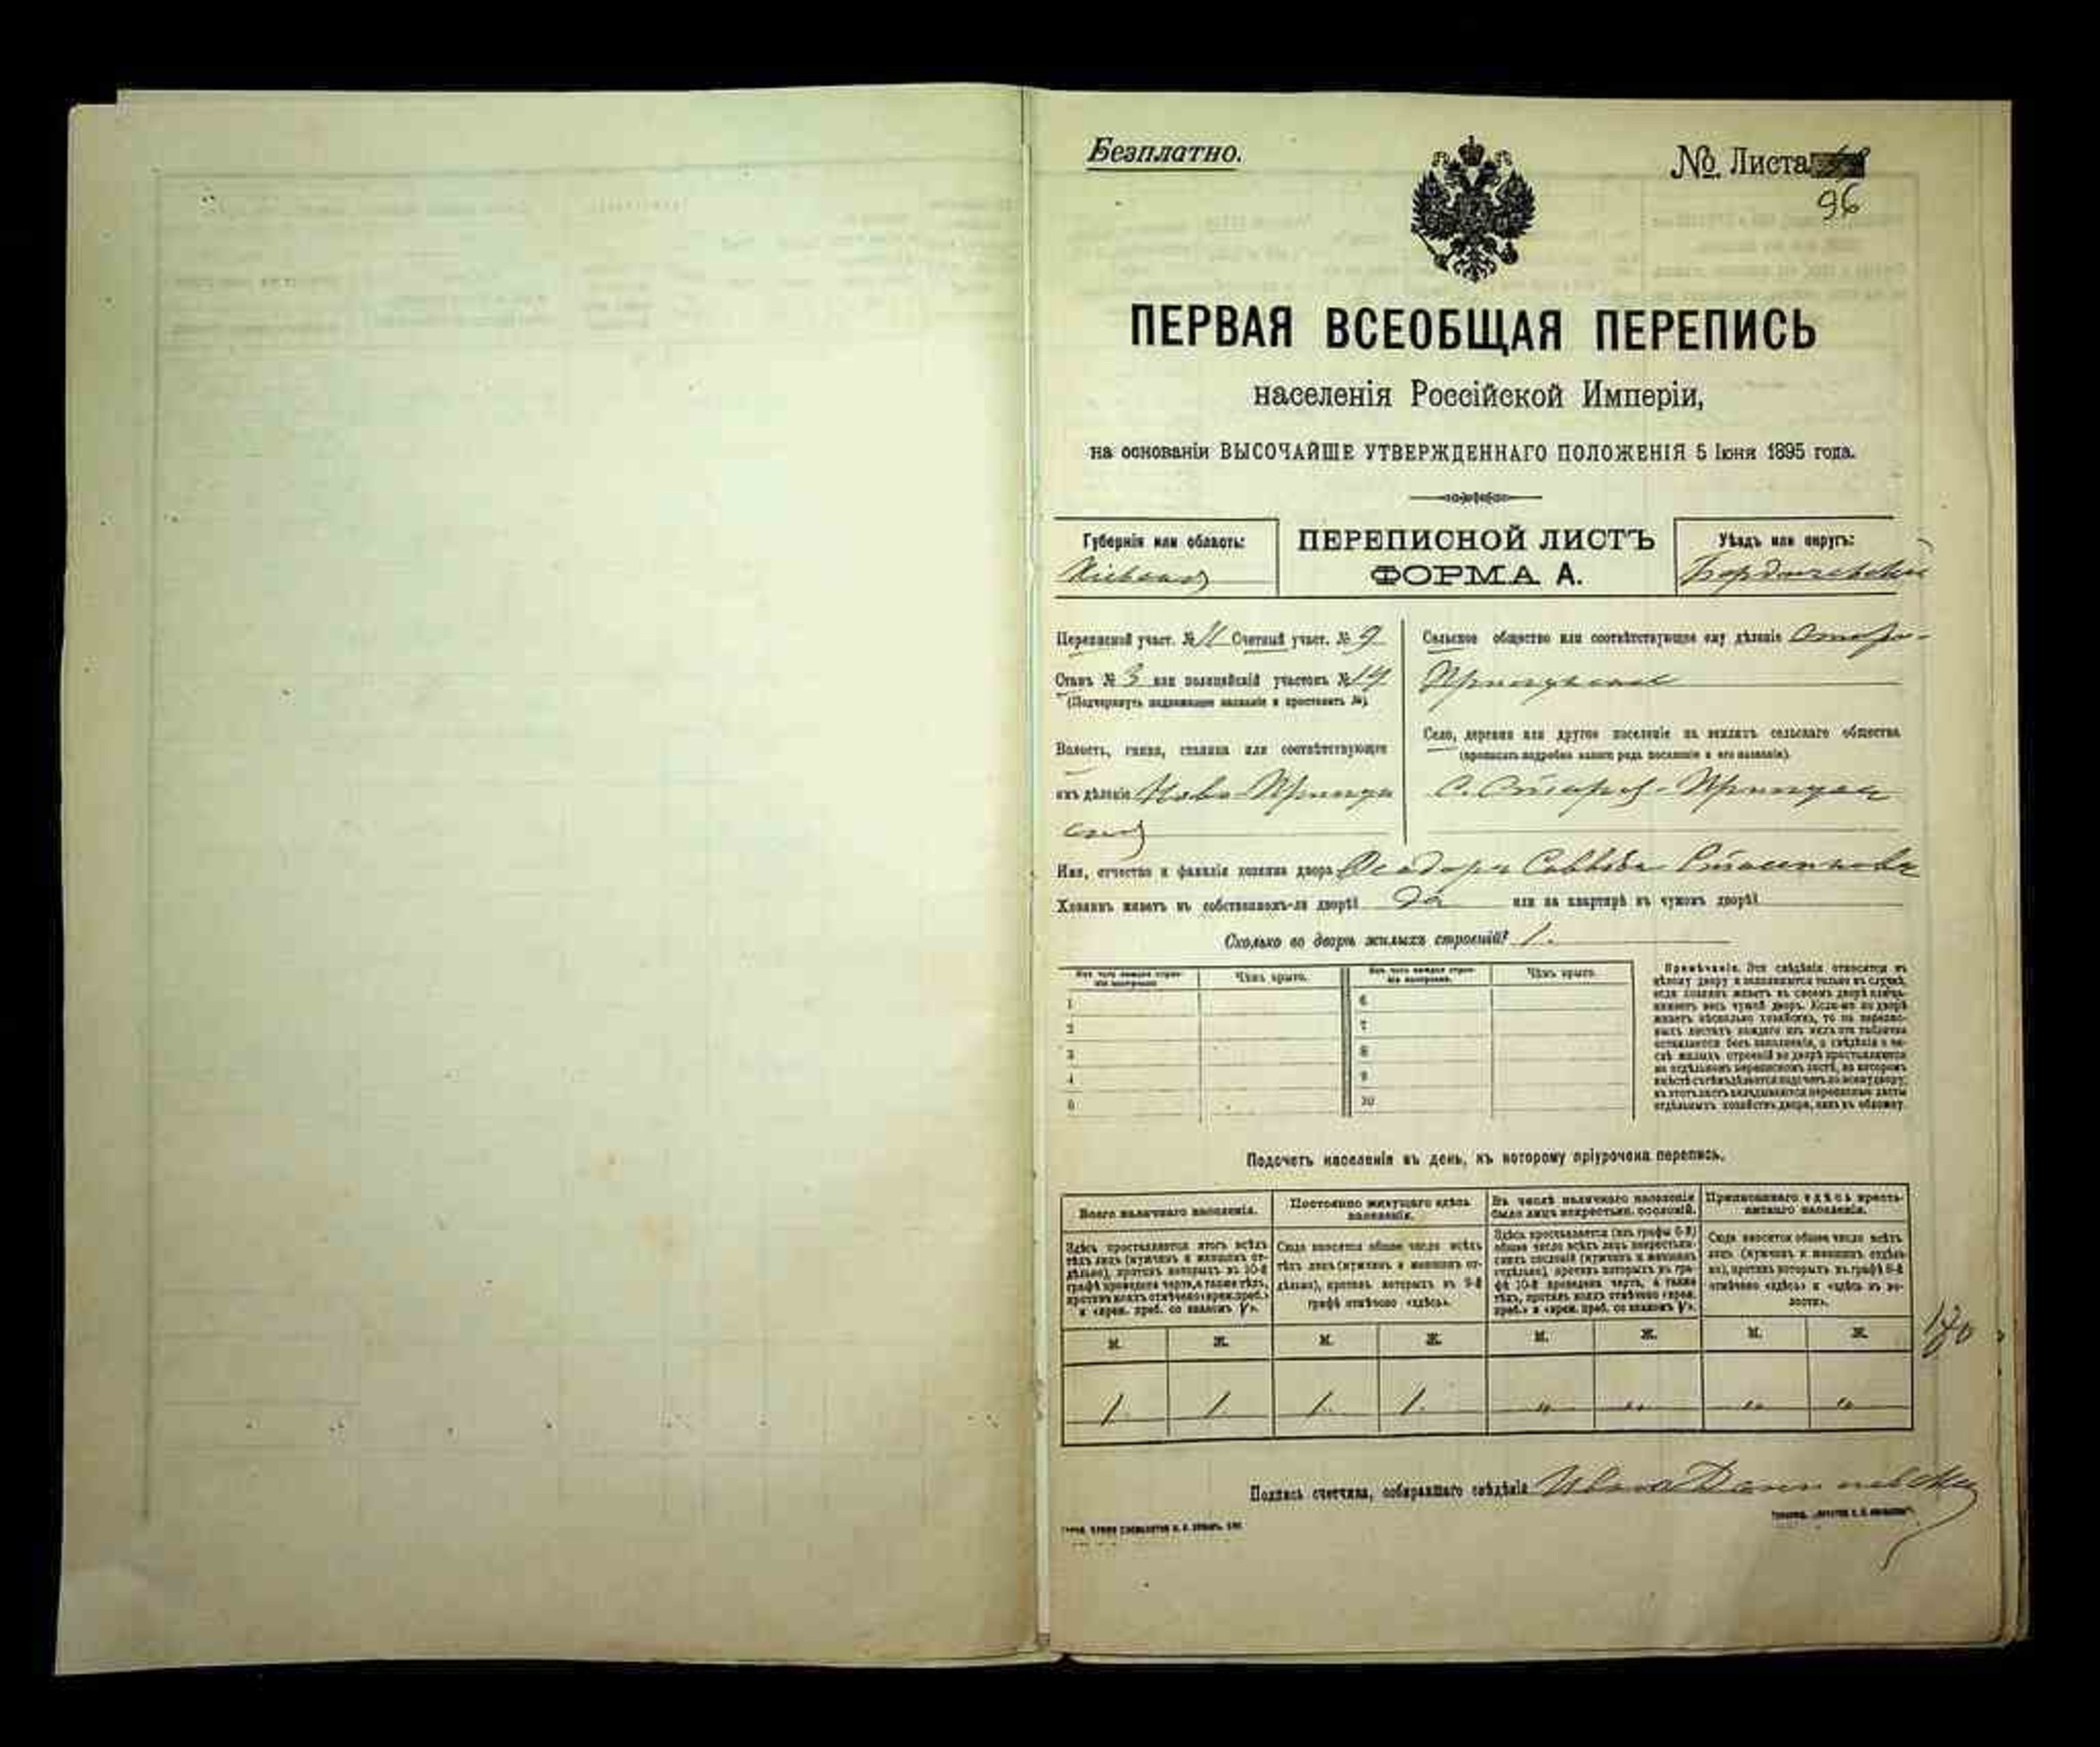 Безплатно.
№ Листа
96
ПЕРВАЯ ВСЕОБЩАЯ ПЕРЕПИСЬ
населенія Россійской Имперіи,
на основаніи ВЫСОЧАЙШЕ УТВЕРЖДЕННАГО ПОЛОЖЕНІЯ 5 Іюня 1895 года.
Губернія или область:
Кіевская
ПЕРЕПИСНОЙ ЛИСТЪ
ФОРМА А.
Уѣздъ или округъ:
Бердичевскій
Переписной участ. № 11 Счетный участ. № 9
Станъ № 3 или полицейскій участокъ № 14
(Подчеркнуть надлежащее названіе и проставить №).
Волость, гмина, станица или соотвѣтствующее
имъ дѣленіе Ново-Прилук
ская
Сельское общество или соотвѣтствующее ему дѣленіе Старо-
Прилукское
Село, деревня или другое поселеніе на земляхъ сельскаго общества
(прописать подробно какого рода поселеніе и его названіе).
С. Старая-Прилука
Имя, отчество и фамилія хозяина двора
Хозяинъ живетъ въ собственномъ-ли дворѣ? Да или на квартирѣ въ чужомъ дворѣ?
Сколько во дворѣ жилыхъ строеній? 1.
Изъ чего каждое строе-
ніе построено
Чѣмъ крыто.
Изъ чего каждое строе-
ніе построено.
Чѣмъ крыто.
1
2
3
4
5
6
7
8
9
10
Примѣчаніе. Эти свѣдѣнія относятся къ
цѣлому двору и заполняются только въ случаѣ,
если хозяинъ живетъ въ своемъ дворѣ или за-
нимаетъ весь чужой дворъ. Если-же во дворѣ
живетъ нѣсколько хозяйствъ, то на перепис-
ныхъ листахъ каждаго изъ нихъ эта табличка
оставляется безъ заполненія, а свѣдѣнія о чи-
слѣ жилыхъ строеній во дворѣ проставляются
на отдѣльномъ переписномъ листѣ, на которомъ
вмѣстѣ съ тѣмъ дѣлается подсчетъ по всему двору;
въ этотъ листъ вкладываются переписные листы
отдѣльныхъ хозяйствъ двора, какъ въ обложку.
Подсчетъ населенія въ день, къ которому пріурочена перепись.
Всего наличнаго населенія.
Постоянно живущаго здѣсь
населенія.
Въ числѣ наличнаго населенія
было лицъ некрестьян. сословій.
Приписаннаго здѣсь кресть-
янскаго населенія.
Здѣсь проставляется итогъ всѣхъ
тѣхъ лицъ (мужчинъ и женщинъ от-
дѣльно), противъ которыхъ въ 10-й
графѣ проведена черта, а также тѣхъ,
противъ коихъ отмѣчено «врем. преб.»
и «врем. преб. со знакомъ V».
Сюда вносится общее число всѣхъ
тѣхъ лицъ (мужчинъ и женщинъ от-
дѣльно), противъ которыхъ въ 9-й
графѣ отмѣчено «здѣсь».
Здѣсь проставляется (изъ графы 6-й)
общее число всѣхъ лицъ некрестьян-
скихъ сословій (мужчинъ и женщинъ
отдѣльно), противъ которыхъ въ гра-
фѣ 10-й проведена черта, а также
тѣхъ, противъ коихъ отмѣчено «врем.
преб.» и «врем. преб. со знакомъ V».
Сюда вносится общее число всѣхъ
лицъ (мужчинъ и женщинъ отдѣль-
но), противъ которыхъ въ графѣ 8-й
отмѣчено «здѣсь» и «здѣсь въ во-
лости».
М. Ж. М. Ж. М. Ж. М. Ж.
1. 1. 1. 1. " " " "
Подпись счетчика, собиравшаго свѣдѣнія